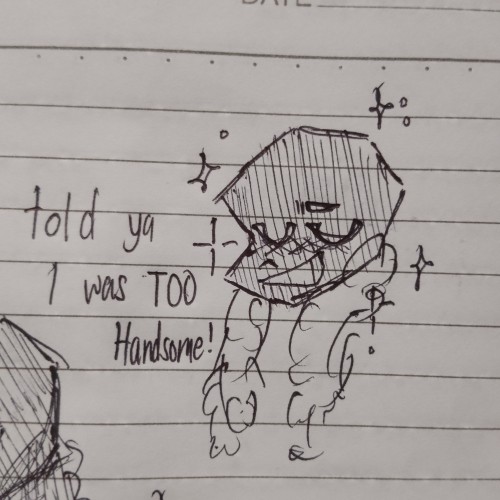 DATE
told ya
I was TOO
Handsome!